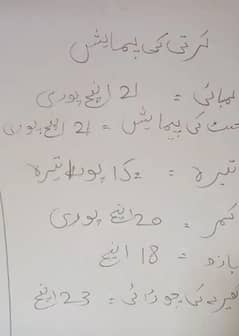 کرتی کی پیمائش
لمبائی = 21 انچ پوری
چیسٹ کی پیمائش = 21 انچ پوری
تیرہ = 15 پورا تیرہ
کمر = 20 انچ پوری
بازو = 18 انچ
گھیرے کی چوڑائی = 23 انچ